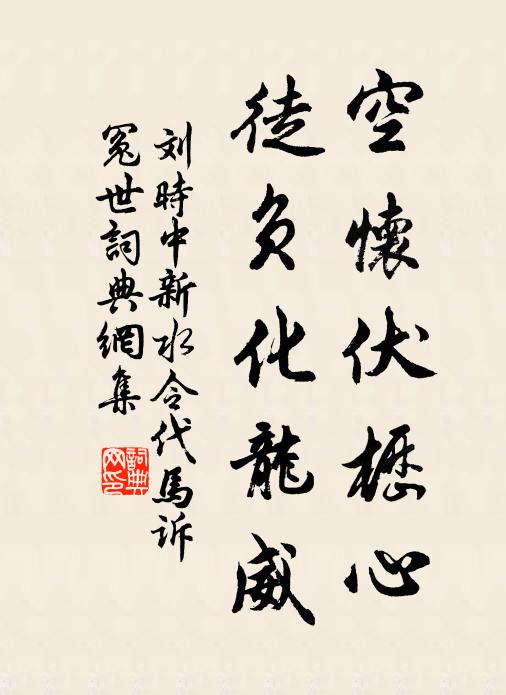 空懷伏櫪心
徒負化龍威
刘時中新水令代馬訴
冤世詞典網集
詞典
网印